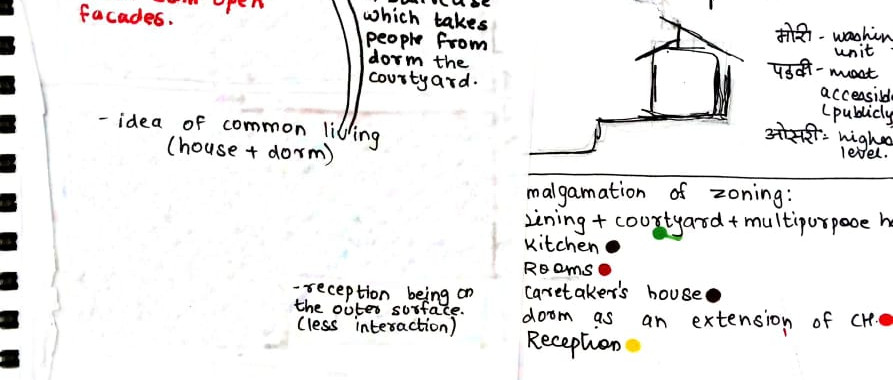 facades.
which takes
people from
dorm the
courtyard.
- idea of common living
(house + dorm)
-reception being on
the outer surface.
(less interaction)
मोरी - washin
unit
पडवी - most
accessible
(publicly
ओसरी - highe
level.
malgamation of zoning:
ining + courtyard + multipurpose h
Kitchen
Rooms
Caretaker's house
dorm as an extension of CH.
Reception